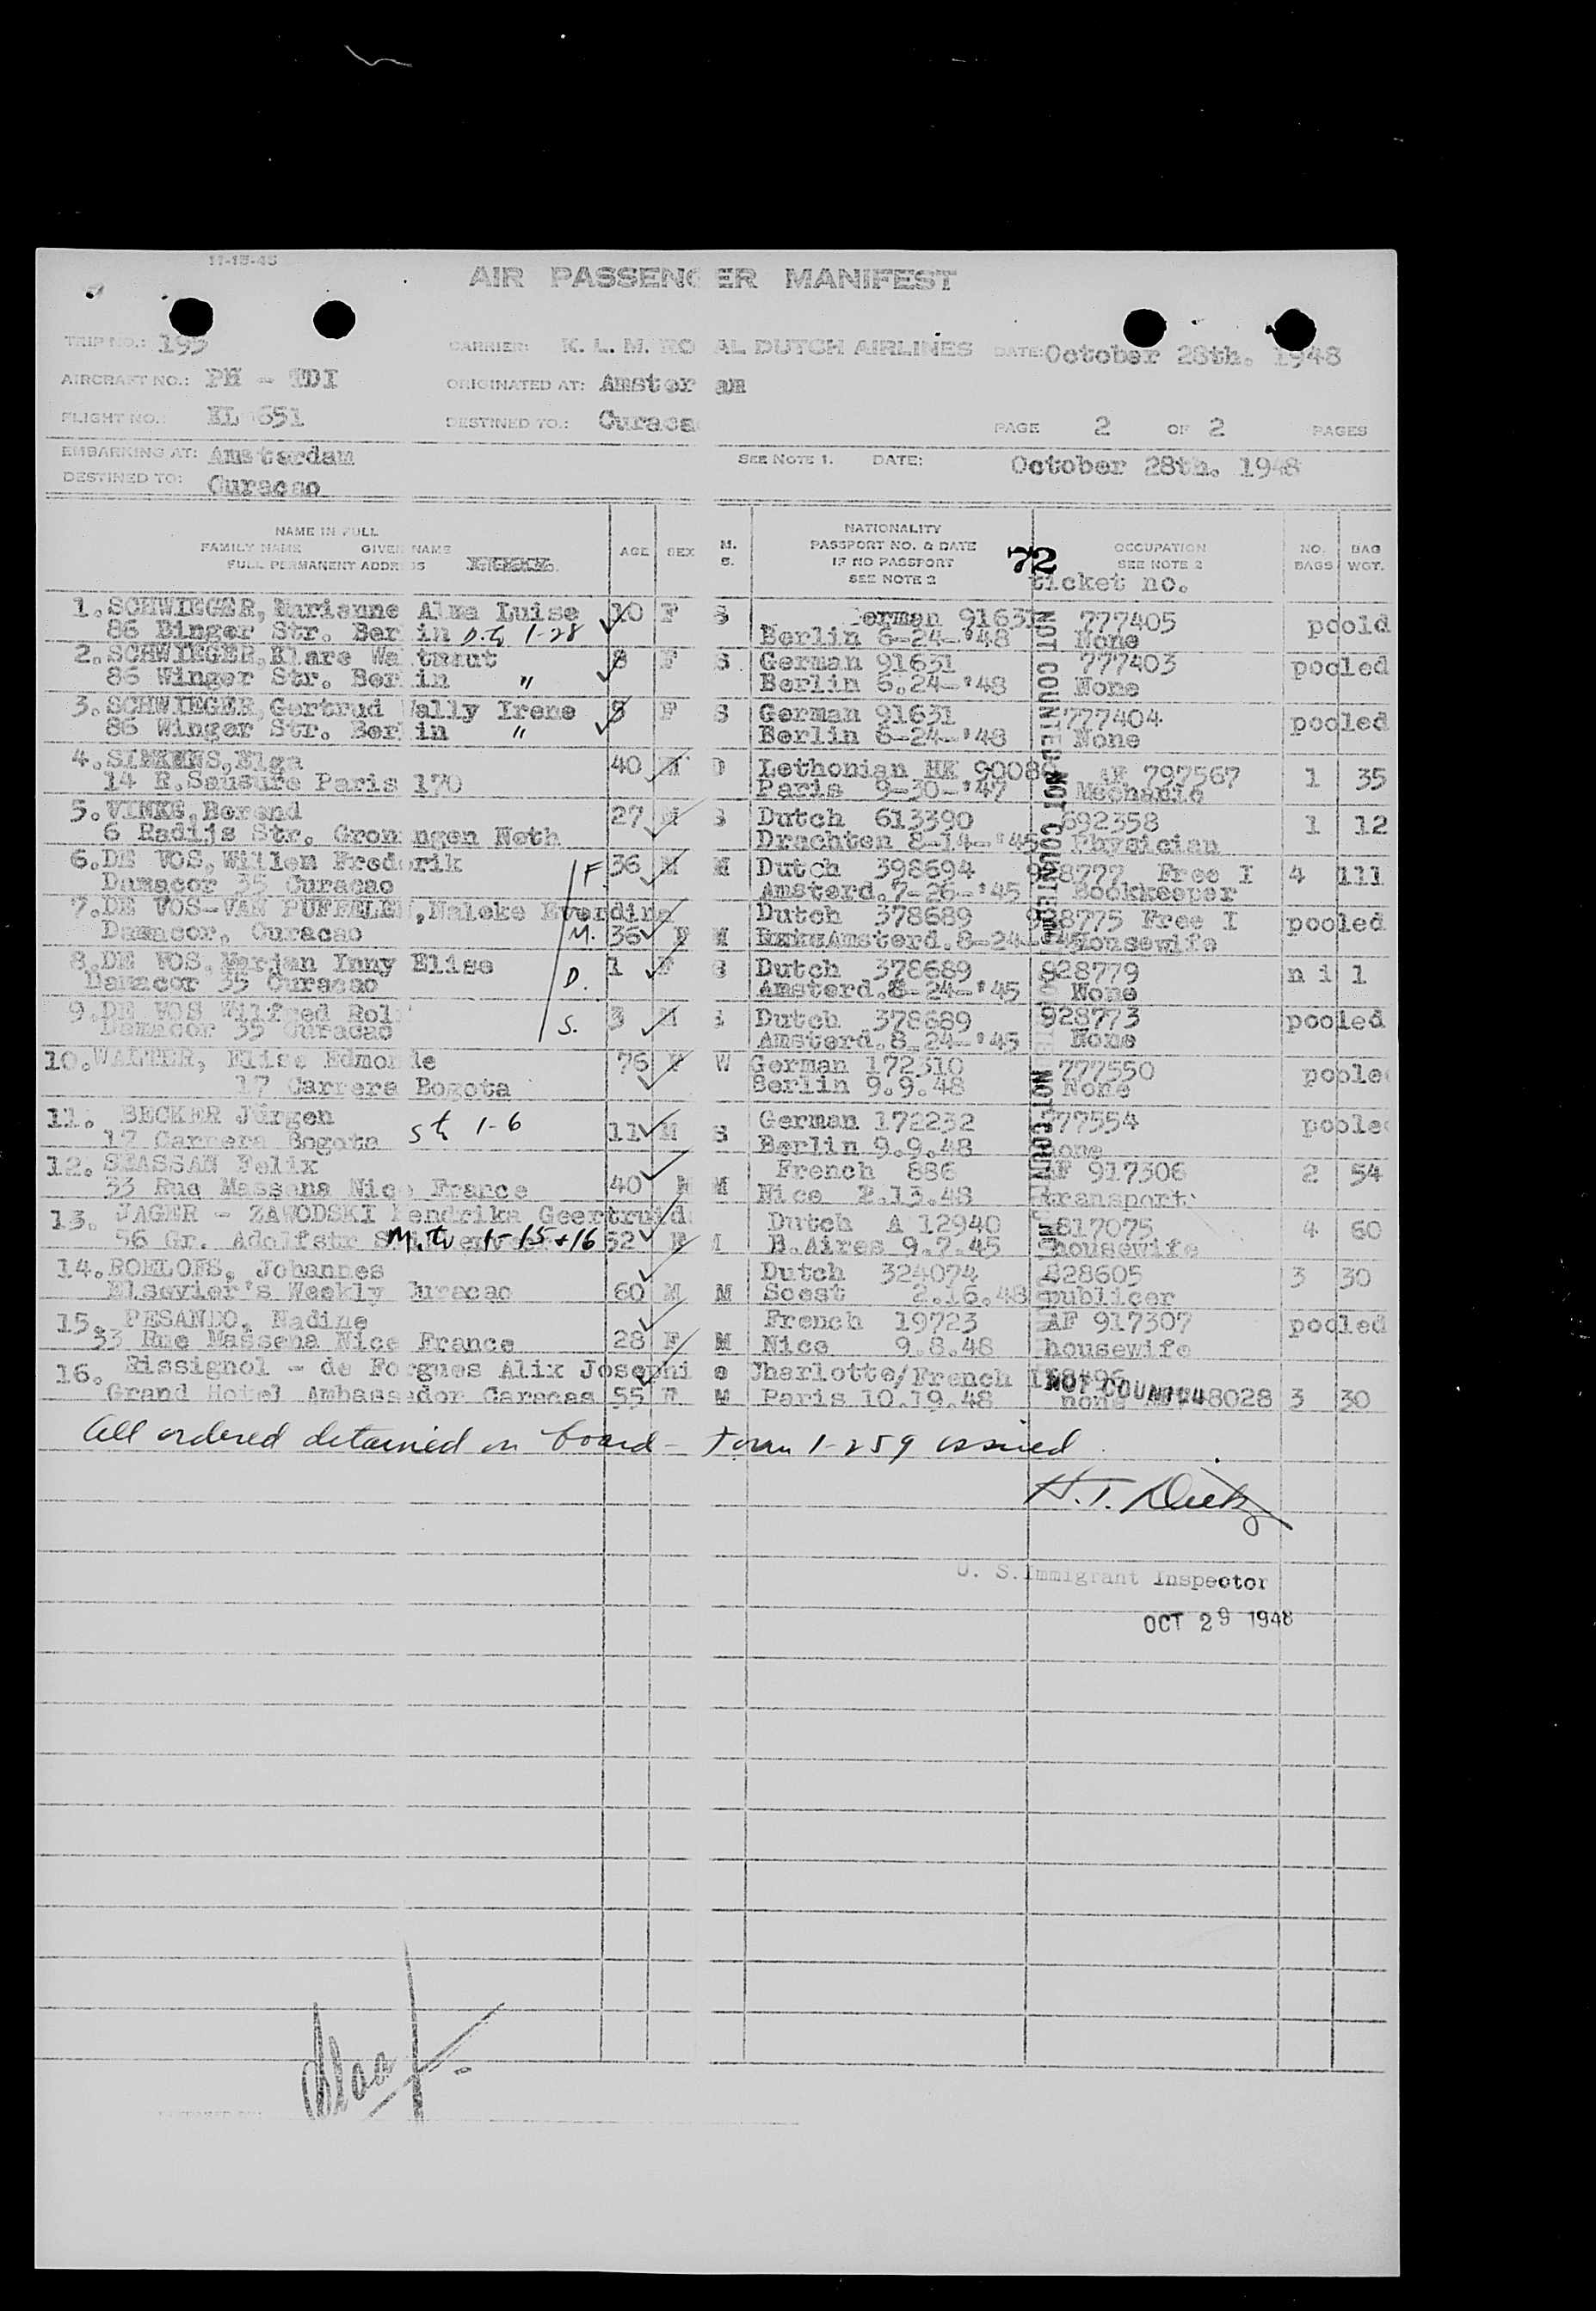 11-15-45
AIR PASSENGER MANIFEST
TRIP NO.: 195
CARRIER: K. L. M. ROYAL DUTCH AIRLINES DATE: October 28th. 1948
AIRCRAFT NO.: PH - TDI
ORIGINATED AT: Amster am
FLIGHT NO.: KL 651
DESTINED TO.: Curaca
PAGE 2 OF 2 PAGES
EMBARKING AT: Amsterdam
SEE NOTE 1. DATE: October 28th. 1948
DESTINED TO: Curacao
NAME IN FULL
FAMILY NAME GIVEN NAME
FULL PERMANENT ADDRESS
AGE SEX M. S.
NATIONALITY
PASSPORT NO. & DATE
IF NO PASSPORT
SEE NOTE 2
72
OCCUPATION
SEE NOTE 2
ticket no.
NO. BAGS
BAG WGT.
1. SCHWIEGER, Marianne Alma Luise 10 F S erman 91631 777405 poold
86 Binger Str. Ber in 1-28 Berlin 6-24-'48 None
2. SCHWIEGER, Klare Wa traut 8 F S German 91631 777403 pooled
86 Winger Str. Ber in " Berlin 6.24-'48 None
3. SCHWIEGER, Gertrud Wally Irene 8 F S German 91631 777404 pooled
86 Winger Str. Ber in " Berlin 6-24-'48 None
4. SIMKENS, Elga 40 M Lethonian HK 90080 AF 797567 1 35
14 R. Sausure Paris 170 Paris 9-30-'47 Mechanic
5. VINKE, Berend 27 M S Dutch 613390 692358 1 12
6 Radijs Str. Gron ngen Neth Drachten 8-14-'45 Physician
6. DE VOS, Willem Frederik F. 36 M M Dutch 398694 928777 Free I 4 111
Damacor 35 Curacao Amsterd. 7-26-'45 Bookkeeper
7. DE VOS-VAN PUFFELEN, Maleke Everdina Dutch 378689 928775 Free I pooled
Damacor, Curacao M. 36 F M Amsterd. 8-24-'45 Housewife
8. DE VOS, Marjan Inny Elise D. 1 F S Dutch 378689 928779 nil
Damacor 35 Curacao Amsterd. 8-24-'45 None
9. DE VOS Wilfred Rol S. 3 M S Dutch 378689 928773 pooled
Damacor 35 Curacao Amsterd. 8-24-'45 None
10. WALTER, Elise Edmonde 76 F W German 172310 777550 poole
17 Carrera Bogota Berlin 9.9.48 None
11. BECKER Jürgen 11 M S German 172232 777554 poole
17 Carrera Bogota 1-6 Berlin 9.9.48 none
12. SZASSAN Felix 40 M M French 886 AF 917306 2 54
33 Rue Massena Nice France Nice 2.13.48 transport
13. JAGER - ZAWODSKI Hendrika Geertruida Dutch A 12940 817075 4 60
56 Gr. Adolfstr 1-15+16 52 F B.Aires 9.7.45 housewife
14. ROELOFS, Johannes Dutch 324074 828605 3 30
Elsevier's Weekly Curacao 60 M M Soest 2.16.48 publicer
15. PESANDO, Nadine French 19723 AF 917307 pooled
33 Rue Massena Nice France 28 F M Nice 9.8.48 housewife
16. Rissignol - de Forgues Alix Josephi e Charlotte/French 188496
Grand Hotel Ambassador Caracas 55 F M Paris 10.19.48 none 48028 3 30
NOT COUNTED
NOT COUNTED
NOT COUNTED
NOT COUNTED
All ordered detained on board - Form I-259 issued
H.T. Dietz
U. S. Immigrant Inspector
OCT 29 1948